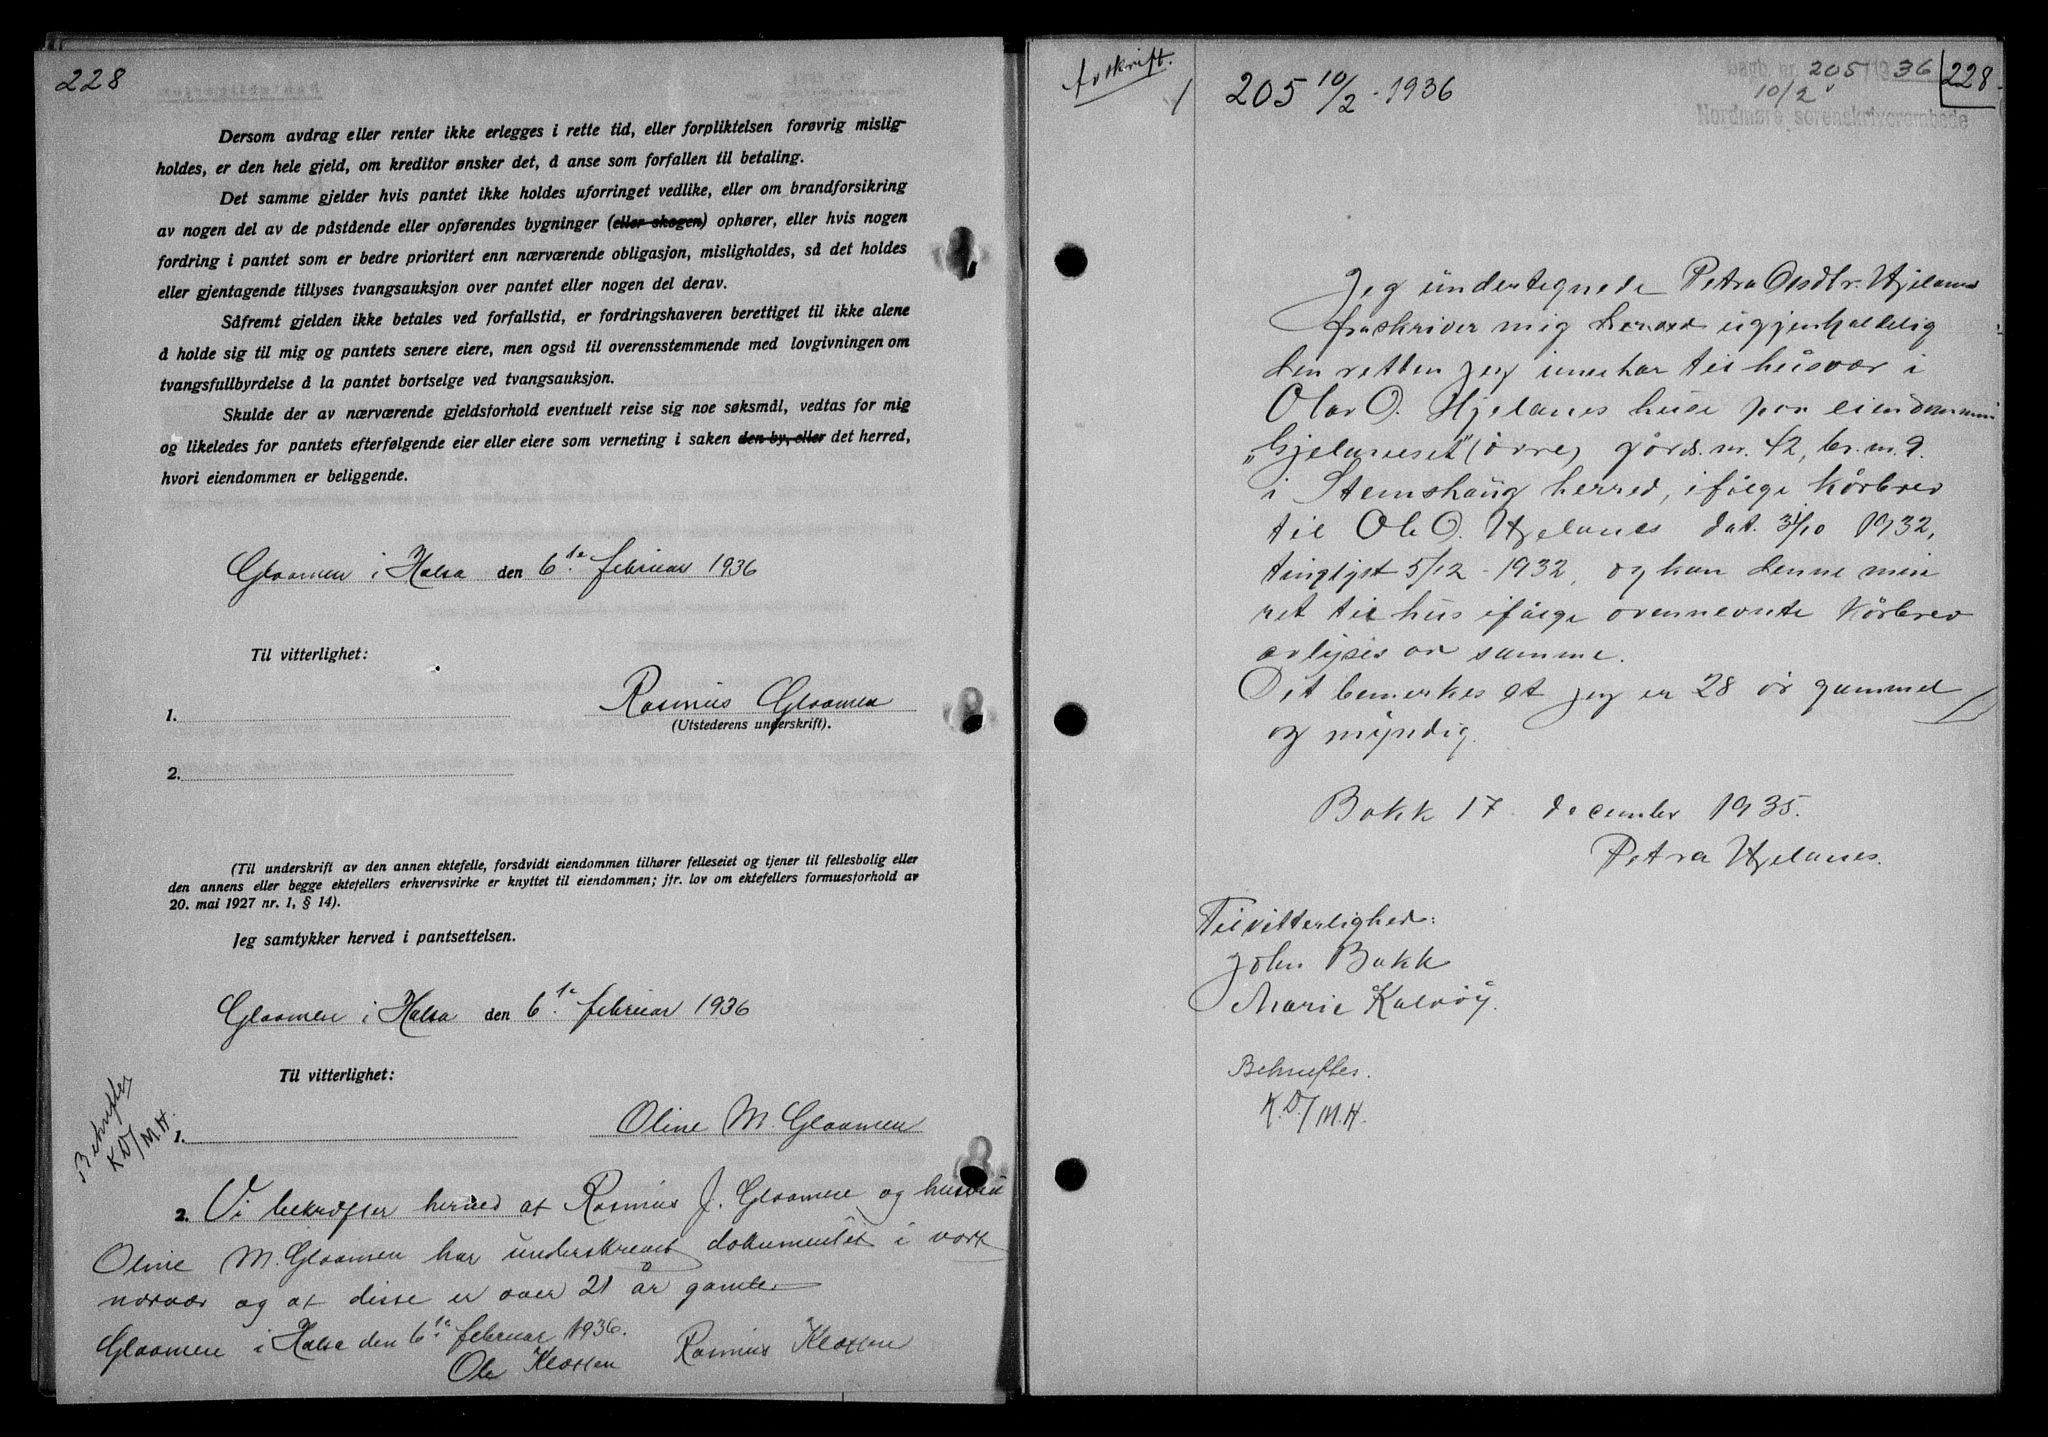 228
Dersom avdrag eller renter ikke erlegges i rette tid, eller forpliktelsen forøvrig mislig-
holdes, er den hele gjeld, om kreditor ønsker det, å anse som forfallen til betaling.
Det samme gjelder hvis pantet ikke holdes uforringet vedlike, eller om brandforsikring
av nogen del av de påstående eller opførendes bygninger (eller skogen) ophører, eller hvis nogen
fordring i pantet som er bedre prioritert enn nærværende obligasjon, misligholdes, så det holdes
eller gjentagende tillyses tvangsauksjon over pantet eller nogen del derav.
Såfremt gjelden ikke betales ved forfallstid, er fordringshaveren berettiget til ikke alene
å holde sig til mig og pantets senere eiere, men også til overensstemmende med lovgivningen om
tvangsfullbyrdelse å la pantet bortselge ved tvangsauksjon.
Skulde der av nærværende gjeldsforhold eventuelt reise sig noe søksmål, vedtas for mig
og likeledes for pantets efterfølgende eier eller eiere som verneting i saken den by, eller det herred,
hvori eiendommen er beliggende.
Glaamen i Halsa den 6te februar 1936
Til vitterlighet:
1.
Rasmus Glaamen
(Utstederens underskrift).
2.
(Til underskrift av den annen ektefelle, forsåvidt eiendommen tilhører felleseiet og tjener til fellesbolig eller
den annens eller begge ektefellers erhvervsvirke er knyttet til eiendommen; jfr. lov om ektefellers formuesforhold av
20. mai 1927 nr. 1, § 14).
Jeg samtykker herved i pantsettelsen.
Glaamen i Halsa den 6te februar 1936
Til vitterlighet:
Bekreftes
K.D/M.H.
1.
Oline M. Glaamen
2. Vi bekrefter herved at Rasmus J. Glaamen og hustru
Oline M. Glaamen har underskrevet dokumentet i vort
nærvær og at disse er over 21 år gamle
Glaamen i Halsa den 6te februar 1936.
Ole Klossen Rasmus Klossen
Avskrift.
205 10/2 - 1936
Dagb. nr. 205/1936
10/2
Nordmøre sorenskriverembede
228
Jeg undertegnede Petra Olsdtr. Hjelanes
fraskriver mig herved ugjenkaldelig
den retten jeg innehar til husvær i
Olav O. Hjelanes huse paa eiendommen
"Gjelaneset" (øvre) gårds.nr. 42, br.nr. 9.
i Stemshaug herred, ifølge kårbrev
til Ole O. Hjelanes dat. 31/10 1932,
tinglyst 5/12 - 1932, og kan denne min
ret til hus ifølge ovennevnte kårbrev
avlyses av samme.
Det bemerkes at jeg er 28 år gammel
og myndig.
Bakk 17 december 1935.
Petra Hjelanes.
Til vitterlighed:
John Bakk
Marie Kalvøy.
Bekreftes.
K.D./M.H.